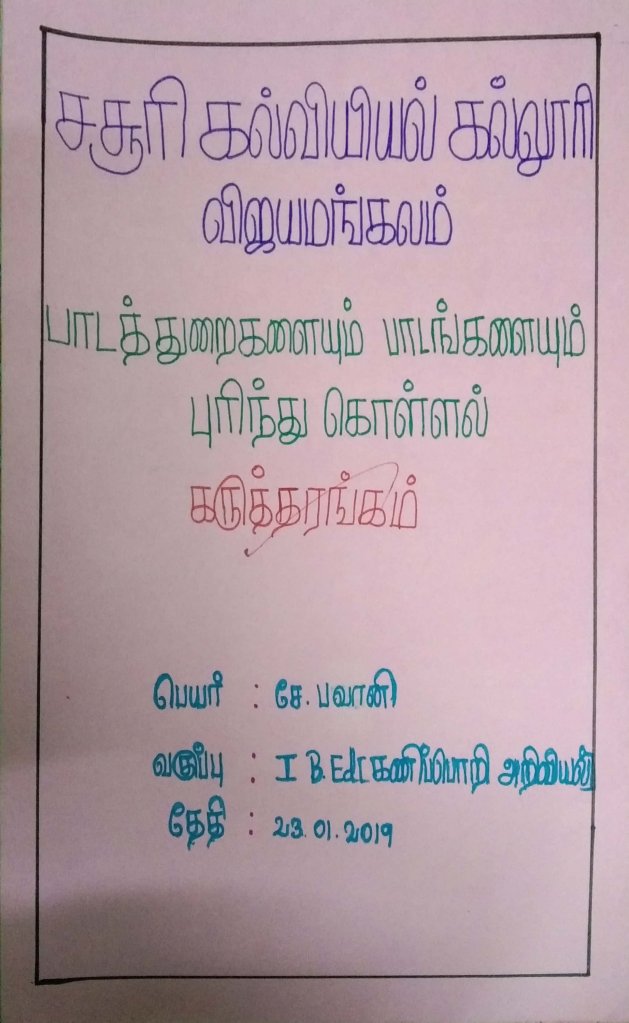 சசூரி கல்வியியல் கல்லூரி
விஜயமங்கலம்
பாடத்துறைகளையும் பாடங்களையும்
புரிந்து கொள்ளல்
கருத்தரங்கம்
பெயர் : சே. பவானி
வகுப்பு : I B.Ed (கணிப்பொறி அறிவியல்)
தேதி : 23.01.2019